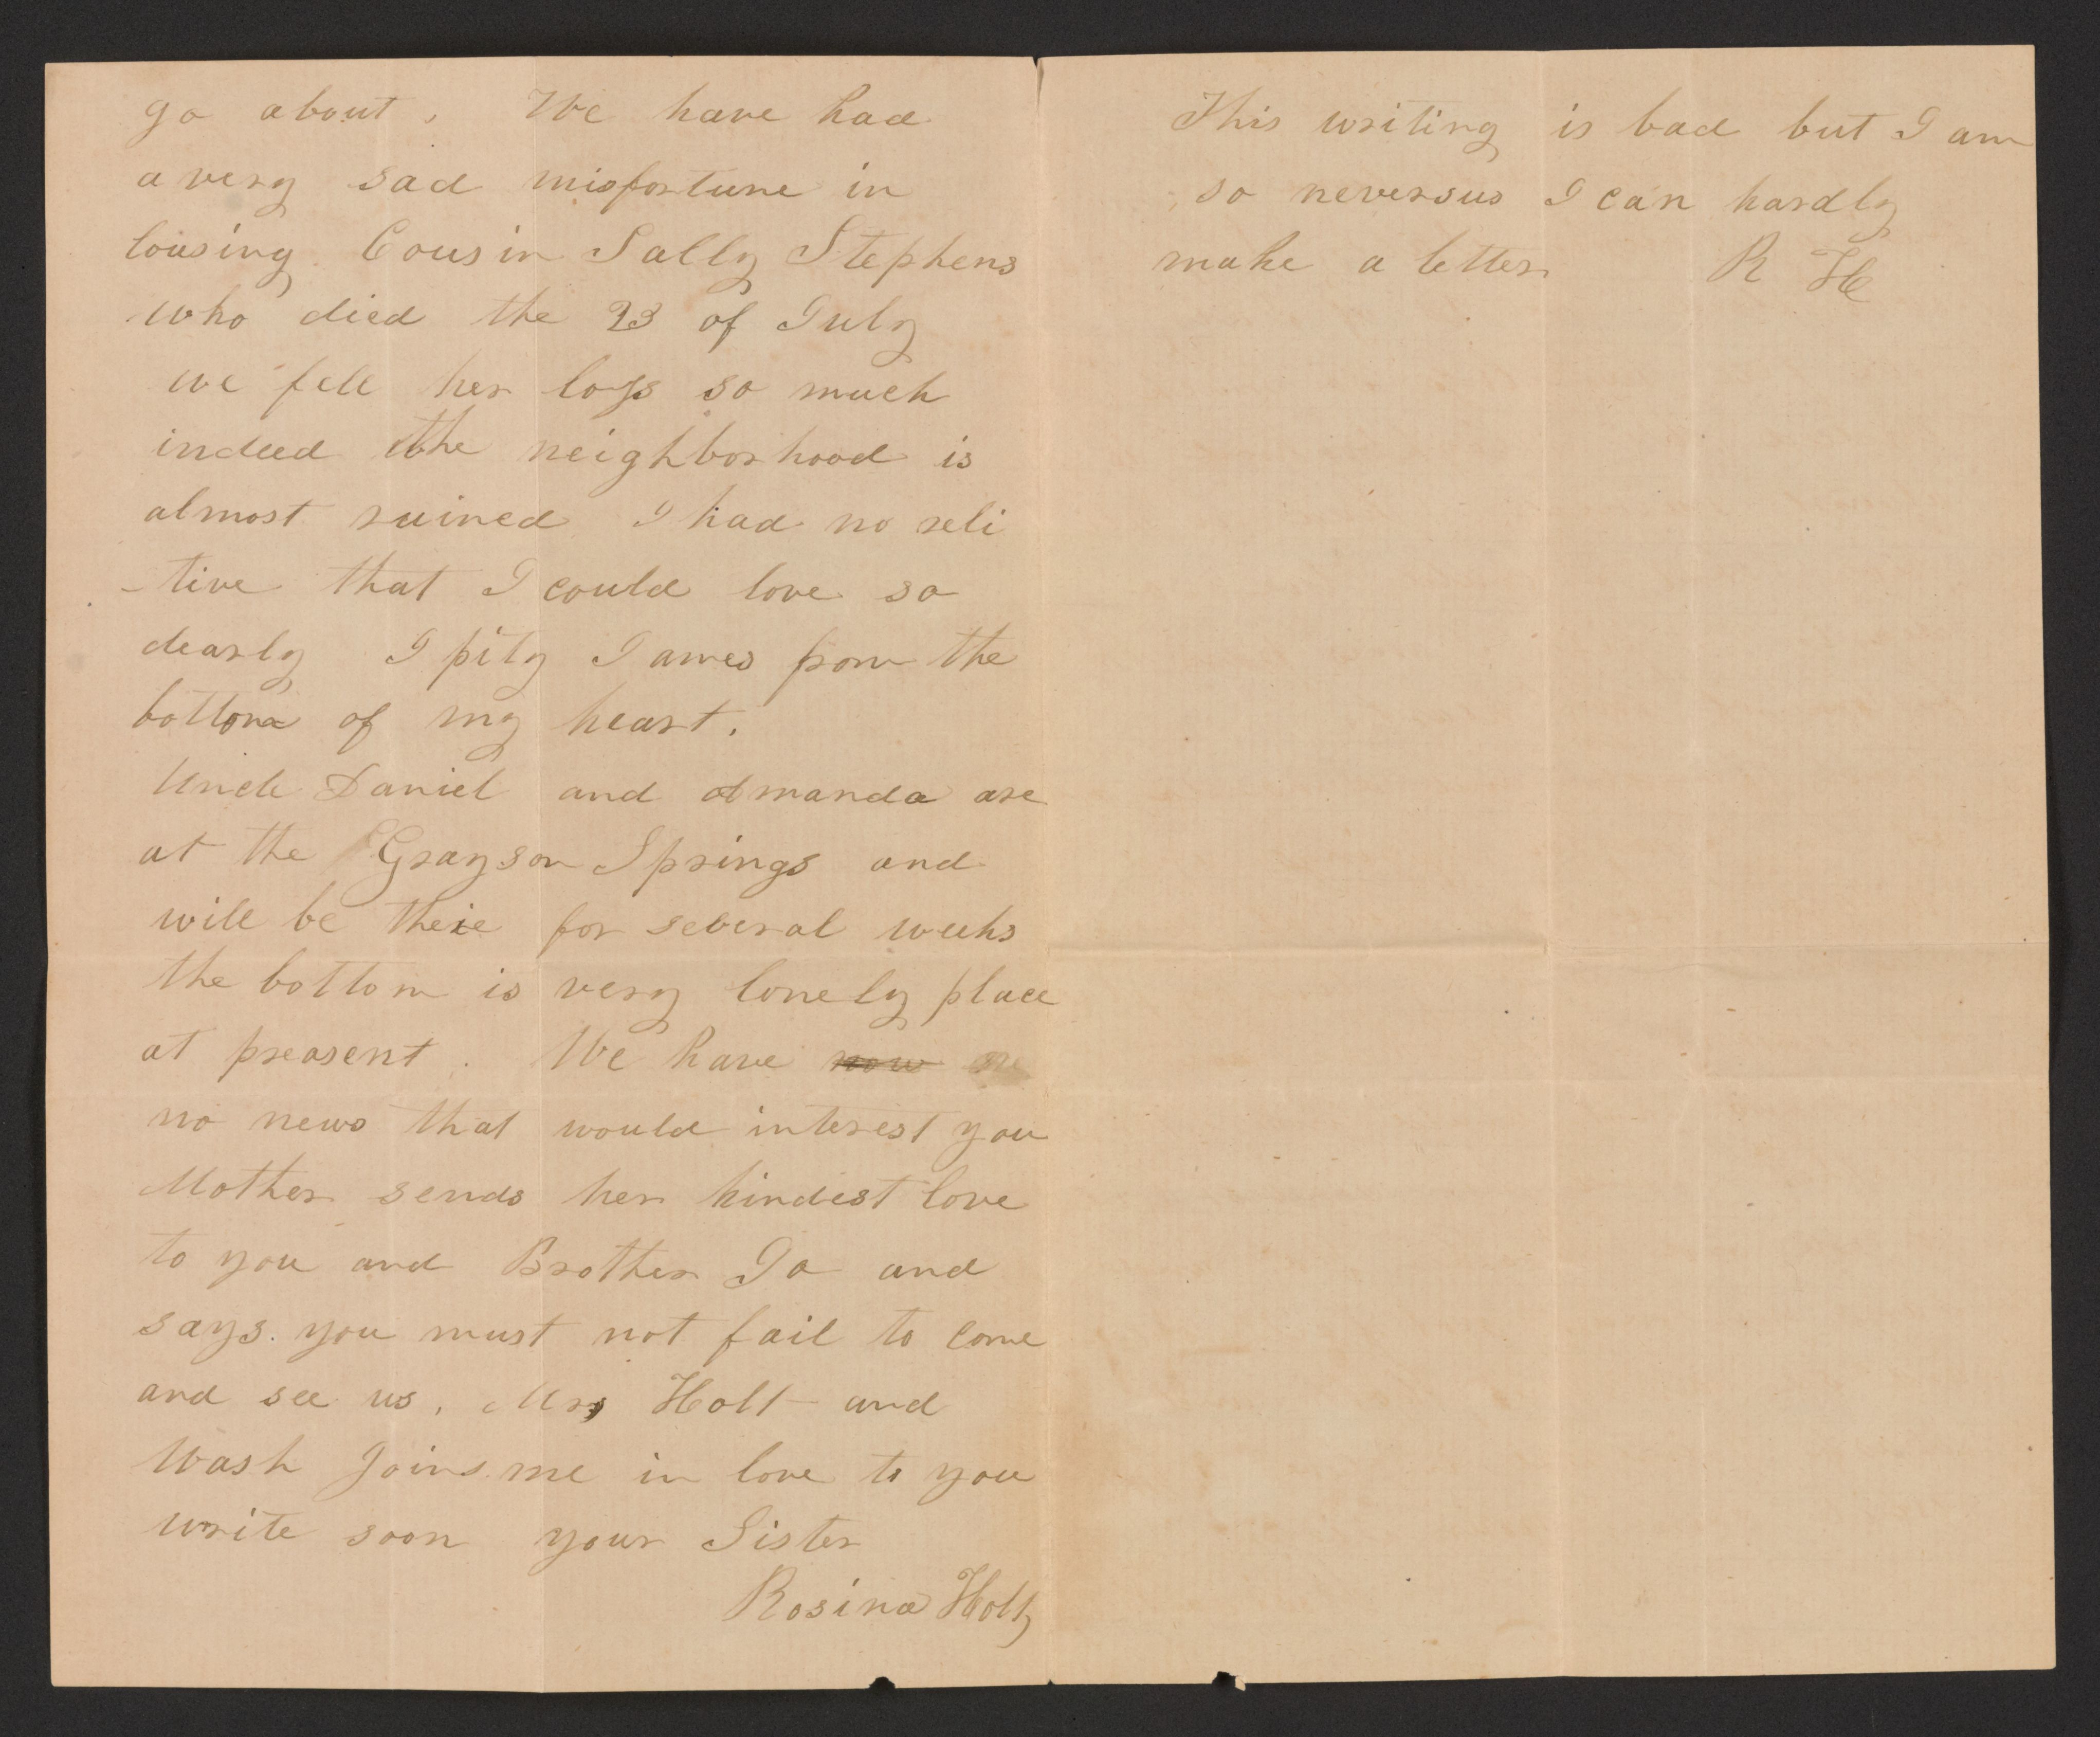 go about. We have had
a very sad misfortune in
lousing. Cousin Sally Stephens
who died the 23 of July
we fell her loss so much
indeed the neighborhood is
almost ruined I had no reli
-tive that I could love so
dearly I pity James from the
bottom of my heart.
Uncle Daniel and Amanda are
at the Grayson Springs and
will be there for several weeks
the bottom is very lonely place
at preasent. We have now
no news that would interest you
Mother sends her kindest love
to you and Brother Jo and
says. you must not fail to come
and see us, Mrs Holt and
Wash joins me in love to you
write soon your Sister
Rosina Holt
This writing is bad but I am
so neversus I can hardly
make a letter R H